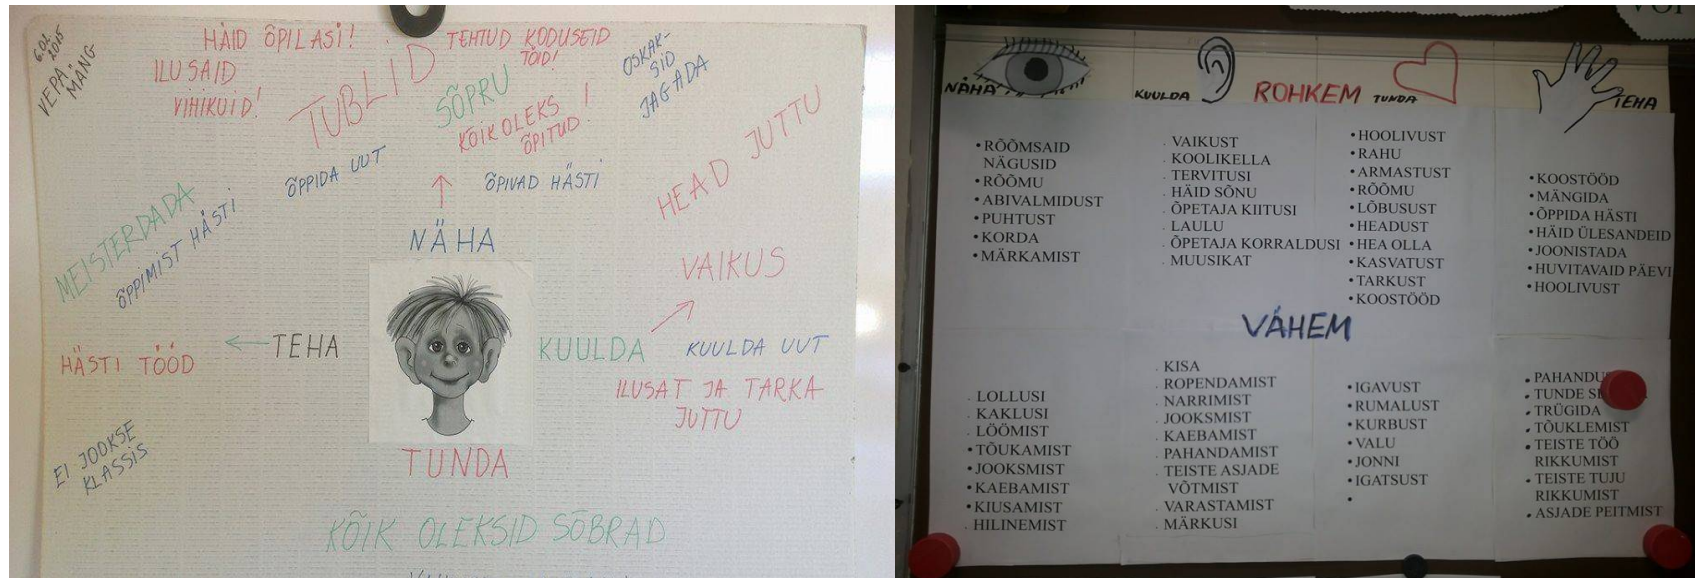 6.02.
2015
VEPA
MÄNG
HÄID ÕPILASI!
ILUSAID
VIHIKUID!
TUBLID
TEHTUD KODUSEID
TÖID!
SÕPRU
KÕIK OLEKS
ÕPITUD!
OSKAK-
SID
JAGADA
ÕPPIDA UUT
ÕPIVAD HÄSTI
HEAD JUTTU
MEISTERDADA
ÕPPIMIST HÄSTI
NÄHA
VAIKUS
TEHA
HÄSTI TÖÖD
KUULDA
KUULDA UUT
ILUSAT JA TARKA
JUTTU
EI JOOKSE
KLASSIS
TUNDA
KÕIK OLEKSID SÕBRAD
NÄHA
KUULDA
ROHKEM
TUNDA
TEHA
• RÕÕMSAID
NÄGUSID
• RÕÕMU
• ABIVALMIDUST
• PUHTUST
• KORDA
• MÄRKAMIST
. VAIKUST
. KOOLIKELLA
. TERVITUSI
. HÄID SÕNU
. ÕPETAJA KIITUSI
. LAULU
. ÕPETAJA KORRALDUSI
. MUUSIKAT
• HOOLIVUST
• RAHU
• ARMASTUST
• RÕÕMU
• LÕBUSUST
• HEADUST
• HEA OLLA
• KASVATUST
• TARKUST
• KOOSTÖÖD
• KOOSTÖÖD
• MÄNGIDA
• ÕPPIDA HÄSTI
• HÄID ÜLESANDEID
• JOONISTADA
• HUVITAVAID PÄEVI
• HOOLIVUST
VÄHEM
. LOLLUSI
. KAKLUSI
. LÖÖMIST
• TÕUKAMIST
• JOOKSMIST
• KAEBAMIST
• KIUSAMIST
. HILINEMIST
. KISA
. ROPENDAMIST
. NARRIMIST
. JOOKSMIST
. KAEBAMIST
. PAHANDAMIST
. TEISTE ASJADE
VÕTMIST
. VARASTAMIST
. MÄRKUSI
• IGAVUST
• RUMALUST
• KURBUST
• VALU
• JONNI
• IGATSUST
•
• TUNDE
• TRÜGIDA
• TÕUKLEMIST
• TEISTE TÖÖ
RIKKUMIST
• TEISTE TUJU
RIKKUMIST
• ASJADE PEITMIST